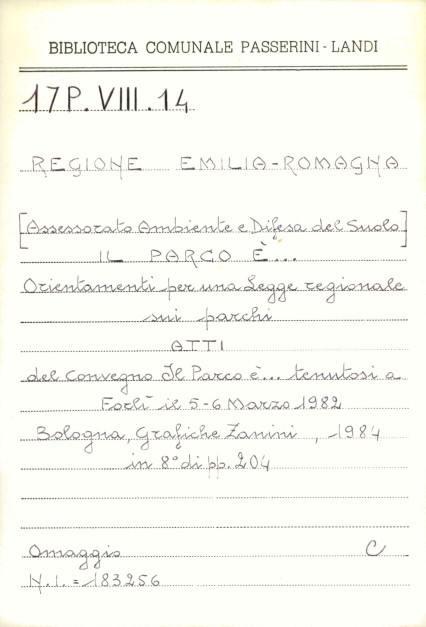 BIBLIOTECA COMUNALE PASSERINI - LANDI
17P. VIII. 14
REGIONE EMILIA-ROMAGNA
[Assessorato Ambiente e Difesa del Suolo]
IL PARCO È...
Orientamenti per una Legge regionale
sui parchi
ATTI
del Convegno Il Parco è... tenutosi a
Forlì il 5-6 Marzo 1982
Bologna, Grafiche Zanini, 1984
in 8° di pp. 204
Omaggio C
N.I. = 183256